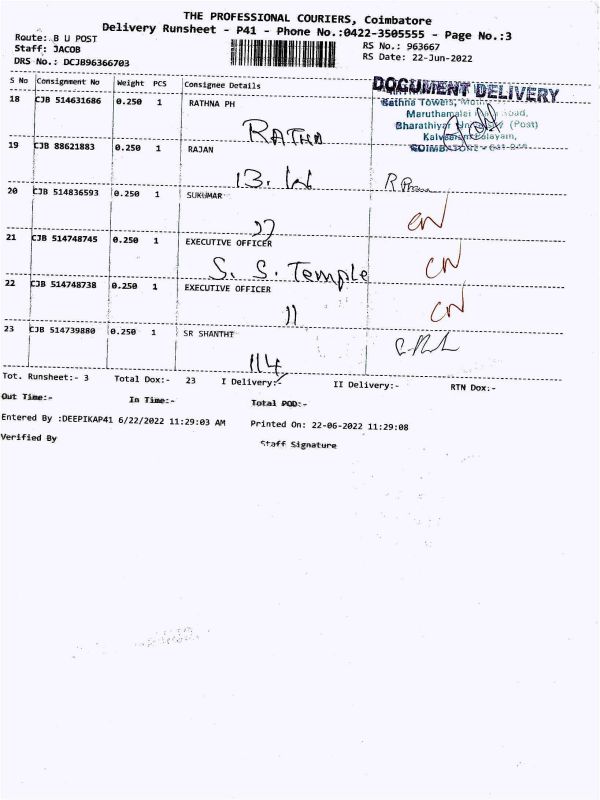 THE PROFESSIONAL COURIERS, Coimbatore
Delivery Runsheet - P41 - Phone No.:0422-3505555 - Page No.:3
Route: B U POST
Staff: JACOB
DRS No.: DCJB96366703
RS No.: 963667
RS Date: 22-Jun-2022
S No Consignment No Weight PCS Consignee Details
DOCUMENT DELIVERY
Rathna Towers,
Maruthamalai Road,
Bharathiyar University (Post)
18 CJB 514631686 0.250 1 RATHNA PH
RATHNA
19 CJB 88621883 0.250 1 RAJAN
13.
20 CJB 514836593 0.250 1 SUKUMAR
CN
21 CJB 514748745 0.250 1 EXECUTIVE OFFICER
S. S. Temple CN
22 CJB 514748738 0.250 1 EXECUTIVE OFFICER
11 CN
23 CJB 514739880 0.250 1 SR SHANTHI
114
Tot. Runsheet:- 3 Total Dox:- 23 I Delivery:- II Delivery:- RTN Dox:-
Out Time:- In Time:- Total POD:-
Entered By :DEEPIKAP41 6/22/2022 11:29:03 AM Printed On: 22-06-2022 11:29:08
Verified By Staff Signature